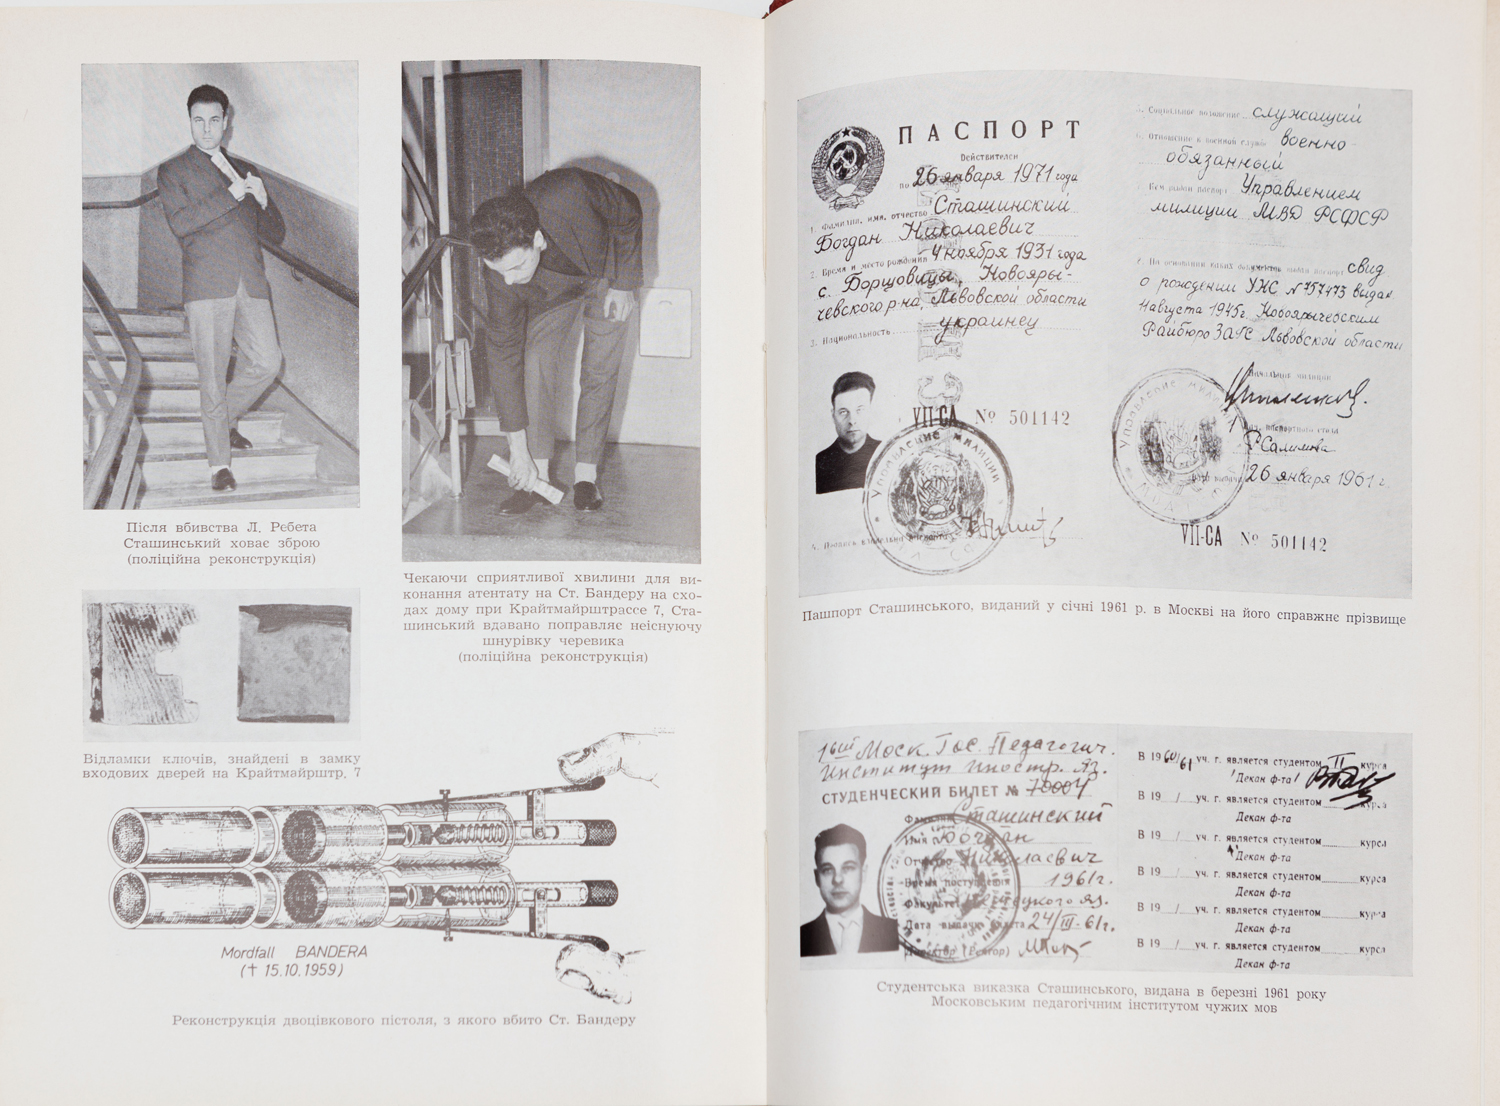 Після вбивства Л. Ребета
Сташинський ховає зброю
(поліційна реконструкція)
Чекаючи сприятливої хвилини для ви-
конання атентату на Ст. Бандеру на схо-
дах дому при Крайтмайрштрассе 7, Ста-
шинський вдавано поправляє неіснуючу
шнурівку черевика
(поліційна реконструкція)
Відламки ключів, знайдені в замку
входових дверей на Крайтмайрштр. 7
Mordfall BANDERA
(† 15.10.1959)
Реконструкція двоцівкового пістоля, з якого вбито Ст. Бандеру
ПАСПОРТ
Действителен
по 26 января 1971 года
1. Фамилия, имя, отчество Сташинский
Богдан Николаевич
2. Время и место рождения 4 ноября 1931 года
с. Борщовицы, Новояры-
чевского р-на, Львовской области
3. Национальность украинец
VII-СА № 501142
5. Социальное положение служащий
6. Отношение к военной службе военно-
обязанный
7. Кем выдан паспорт Управлением
милиции МВД РСФСР
8. На основании каких документов выдан паспорт свид
о рождении УЖС № 757473 выдан
4 августа 1945г. Новоярычевским
Райбюро ЗАГС Львовской области
Начальник милиции
26 января 1961 г.
VII-СА № 501142
Пашпорт Сташинського, виданий у січні 1961 р. в Москві на його справжнє прізвище
1ый Моск. Гос. Педагогич.
Институт Иностр. Яз.
СТУДЕНЧЕСКИЙ БИЛЕТ № 70004
Фамилия Сташинский
Имя Богдан
Отчество Николаевич
Время поступления 1961г.
Факультет Немецкого яз.
Дата выдачи билета 24/III-61г.
Директор (Ректор)
В 1960/61 уч. г. является студентом II курса
Декан ф-та
В 19 / уч. г. является студентом курса
Декан ф-та
В 19 / уч. г. является студентом курса
Декан ф-та
В 19 / уч. г. является студентом курса
Декан ф-та
В 19 / уч. г. является студентом курса
Декан ф-та
В 19 / уч. г. является студентом курса
Декан ф-та
Студентська виказка Сташинського, видана в березні 1961 року
Московським педагогічним інститутом чужих мов